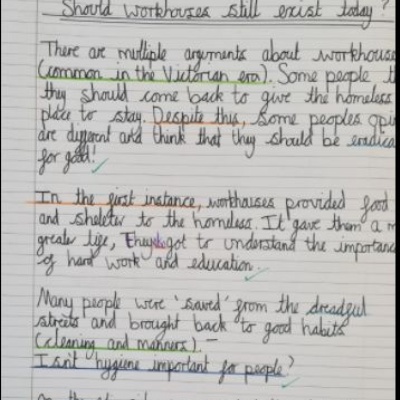 Should workhouses still exist today?
There are multiple arguments about workhouse
(common in the Victorian era). Some people t
they should come back to give the homeless
place to stay. Despite this, some peoples opi
are different and think that they should be eradica
for good!
In the first instance, workhouses provided food
and sheleter to the homeless. It gave them a m
greater life, They got to understand the importanc
of hard work and education.
Many people were 'saved' from the dreadful
streets and brought back to good habits
(cleaning and manners). –
Isn't hygiene important for people?